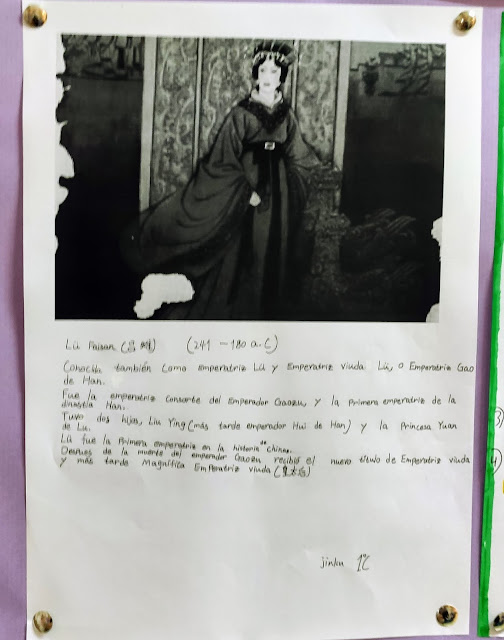 Lü Paisan (吕雉) (241 – 180 a.C)
Conocida también como emperatriz Lü y Emperatriz viuda Lü, o Emperatriz Gao
de Han.
Fue la emperatriz consorte del Emperador Gaozu, y la primera emperatriz de la
dinastía Han.
Tuvo dos hijos, Liu Ying (más tarde emperador Hui de Han) y la Princesa Yuan
de Lu.
Lü fue la Primera emperatriz en la historia de China.
Despues de la muerte del emperador Gaozu recibió el nuevo título de Emperatriz viuda
y más tarde Magnífica Emperatriz viuda (皇太后)
jinku 1ºC
3)
4)